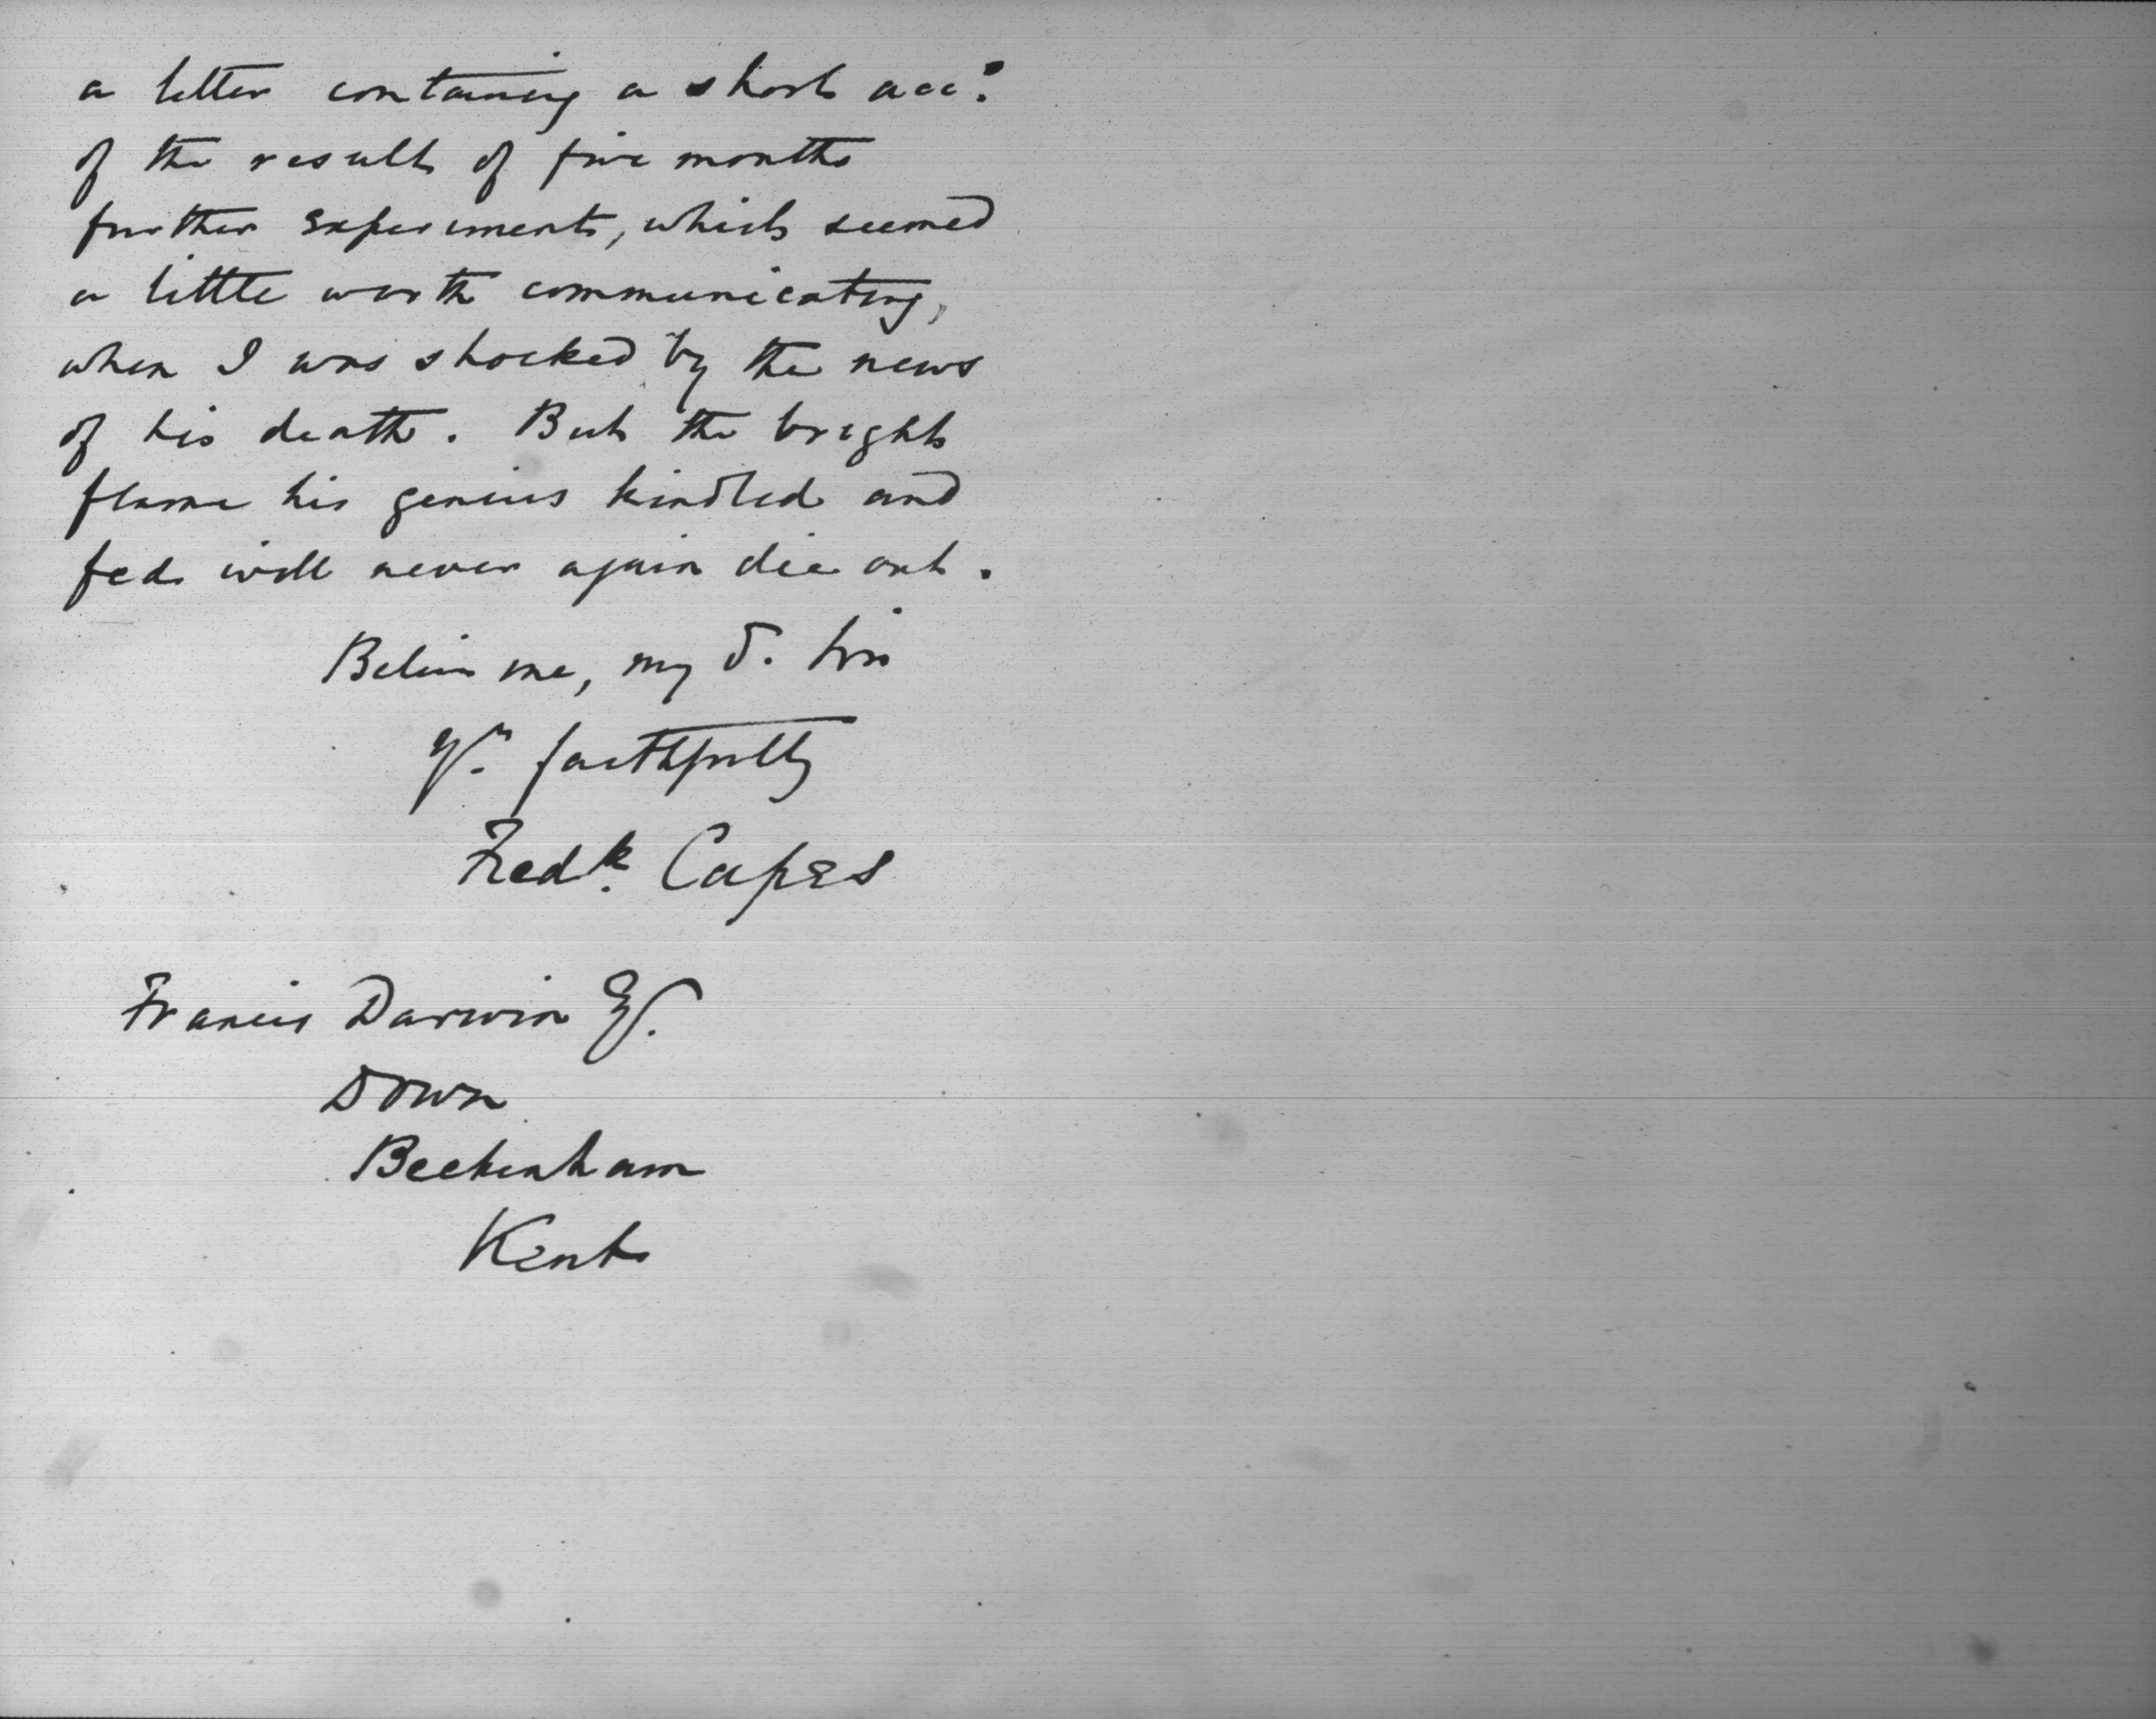 a letter containing a short acct.
of the result of five months
further experiments, which seemed
a little worth communicating,
when I was shocked by the news
of his death. But the bright
flame his genius kindled and
fed will never again die out.
Believe me, my d. Sir
yrs. faithfully
Fredk. Capes
Francis Darwin Esq.
Down
Beckenham
Kent